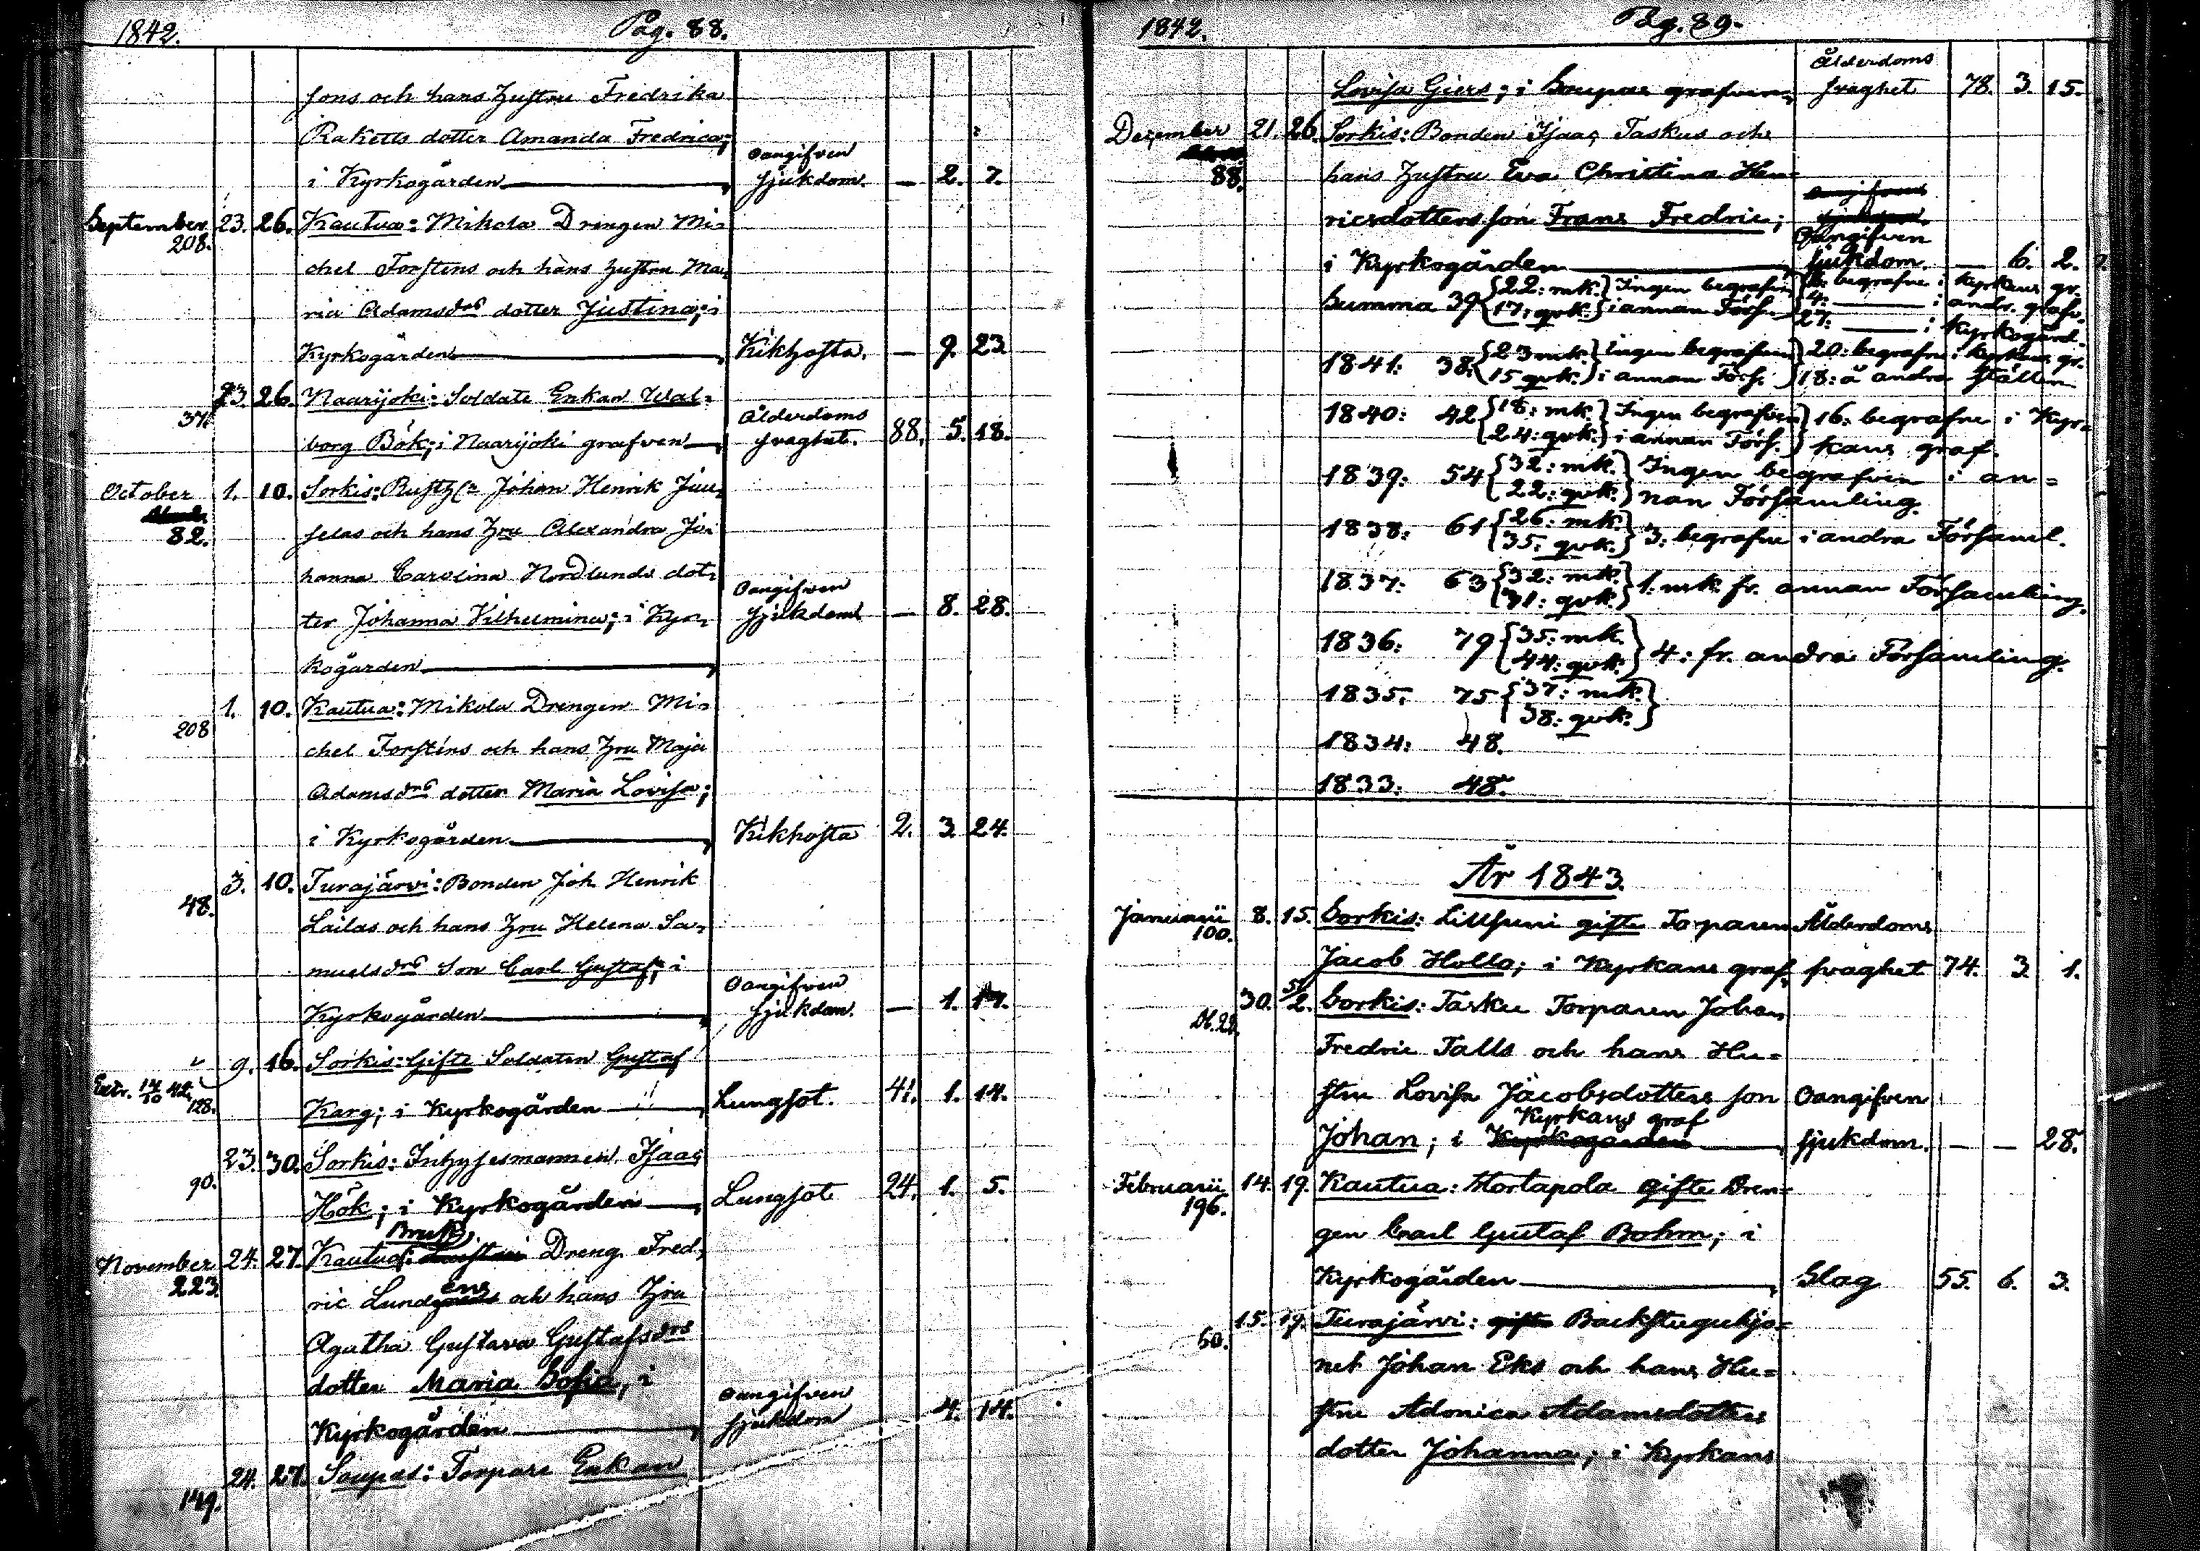 1842. Pag. 88.
sons och hans Hustru Fredrika
Raketts dotter Amanda Fredrica;
i Kyrkogården Oangifven sjukdom. — 2. 7.
September 208. 23. 26. Kautua: Mikola Drengen Mi-
chel Forstens och hans hustru Ma-
ria Adamsdrs dotter Justina; i
Kyrkogården Kikhosta. — 9. 23
37. 23. 26. Naarijoki: Soldats Enkan Wal-
borg Bök; i Naarijoki grafven Ålderdoms svaghet. 88. 5. 18.
October 82. 1. 10. Sorkis: Johan Henrik Juu-
selas och hans Hru Alexandra Jo-
hanna Carolina Nordlunds dot-
ter Johanna Vilhelmina; i Kyr- Oangifven sjukdom — 8. 28.
kogården
208 1. 10. Kautua: Mikola Drengen Mi-
chel Forstens och hans Hru Maja
Adamsdrs dotter Maria Lovisa;
i Kyrkogården Kikhosta 2. 3. 24.
48. 3. 10. Turajärvi: Bonden Joh. Henrik
Lailas och hans Hru Helena Sa-
muelsdrs Son Carl Gustaf; i
Kyrkogården Oangifven sjukdom. — 1.
Extr. 14/10 42. 128. 9. 16. Sorkis: Gifte Soldaten Gustaf
Karg; i Kyrkogården Lungsot. 41. 1. 14.
90. 23. 30. Sorkis: Inhysesmannen Isaac
Hök; i Kyrkogården Lungsot 24. 1. 5.
November 223. 24. 27. Kautua: Bruks Dreng Fred-
ric Lundens och hans Hru
Agatha Gustava Gustafsdrs
dotter Maria Sofia, i
Kyrkogården Oangifven sjukdom 4. 14.
149. 24. 27. Soupas: Torpare Enkan
1842. Pag. 89.
Lovisa Giers; i Soupas grafven Ålderdoms svaghet 78. 3. 15.
December 88. 21. 26. Sorkis: Bonden Isaac Taskus och
hans Hustru Eva Christina Hen-
ricsdotters son Frans Fredric;
i Kyrkogården Oangifven sjukdom. — 6. 2.
Summa 39 {22: mk. 17: qvk.} Ingen begrafven i annan Förs. begrafne i Kyrkans gr. 4: — i andr. grafv. 27: — i Kyrkogård.
1841: 38: {23 mk. 15 qvk.} Ingen begrafven i annan Förs. 20: begrafne i Kyrkans gr. 18: å andra ställen
1840: 42 {18: mk. 24: qvk.} Ingen begrafven i annan Förs. } 16: begrafne i Kyr-
kans graf.
1839: 54 {32: mk. 22: qvk.} Ingen begrafven i an-
nan Församling.
1838: 61 {26: mk. 35: qvk.} 3: begrafne i andra Församl.
1837: 63 {32: mk. 31: qvk.} 1. mk. fr. annan Församling.
1836: 79 {35: mk. 44: qvk.} 4: fr. andra Församling.
1835: 75 {37: mk. 38: qvk.}
1834: 48.
1833: 48.
År 1843.
Januarii 100. 8. 15. Sorkis: Lillsuni gifte Torparen Ålderdoms
Jacob Hollo; i Kyrkans graf, svaghet 74. 3. 1.
30. 5/2. Sorkis: Tasku Torparen Johan
Fredric Talls och hans Hu-
stru Lovisa Jacobsdotters son Oangifven
Johan; i Kyrkans graf sjukdom. — — 28.
Februarii 196. 14. 19. Kautua: Mortapola gifte Dren-
gen Carl Gustaf Bohm; i
Kyrkogården Slag 55. 6. 3.
50. 15. 19. Turajärvi: Backstuguhjo-
net Johan Eks och hans Hu-
stru Adonica Adamsdotters
dotter Johanna; i Kyrkans